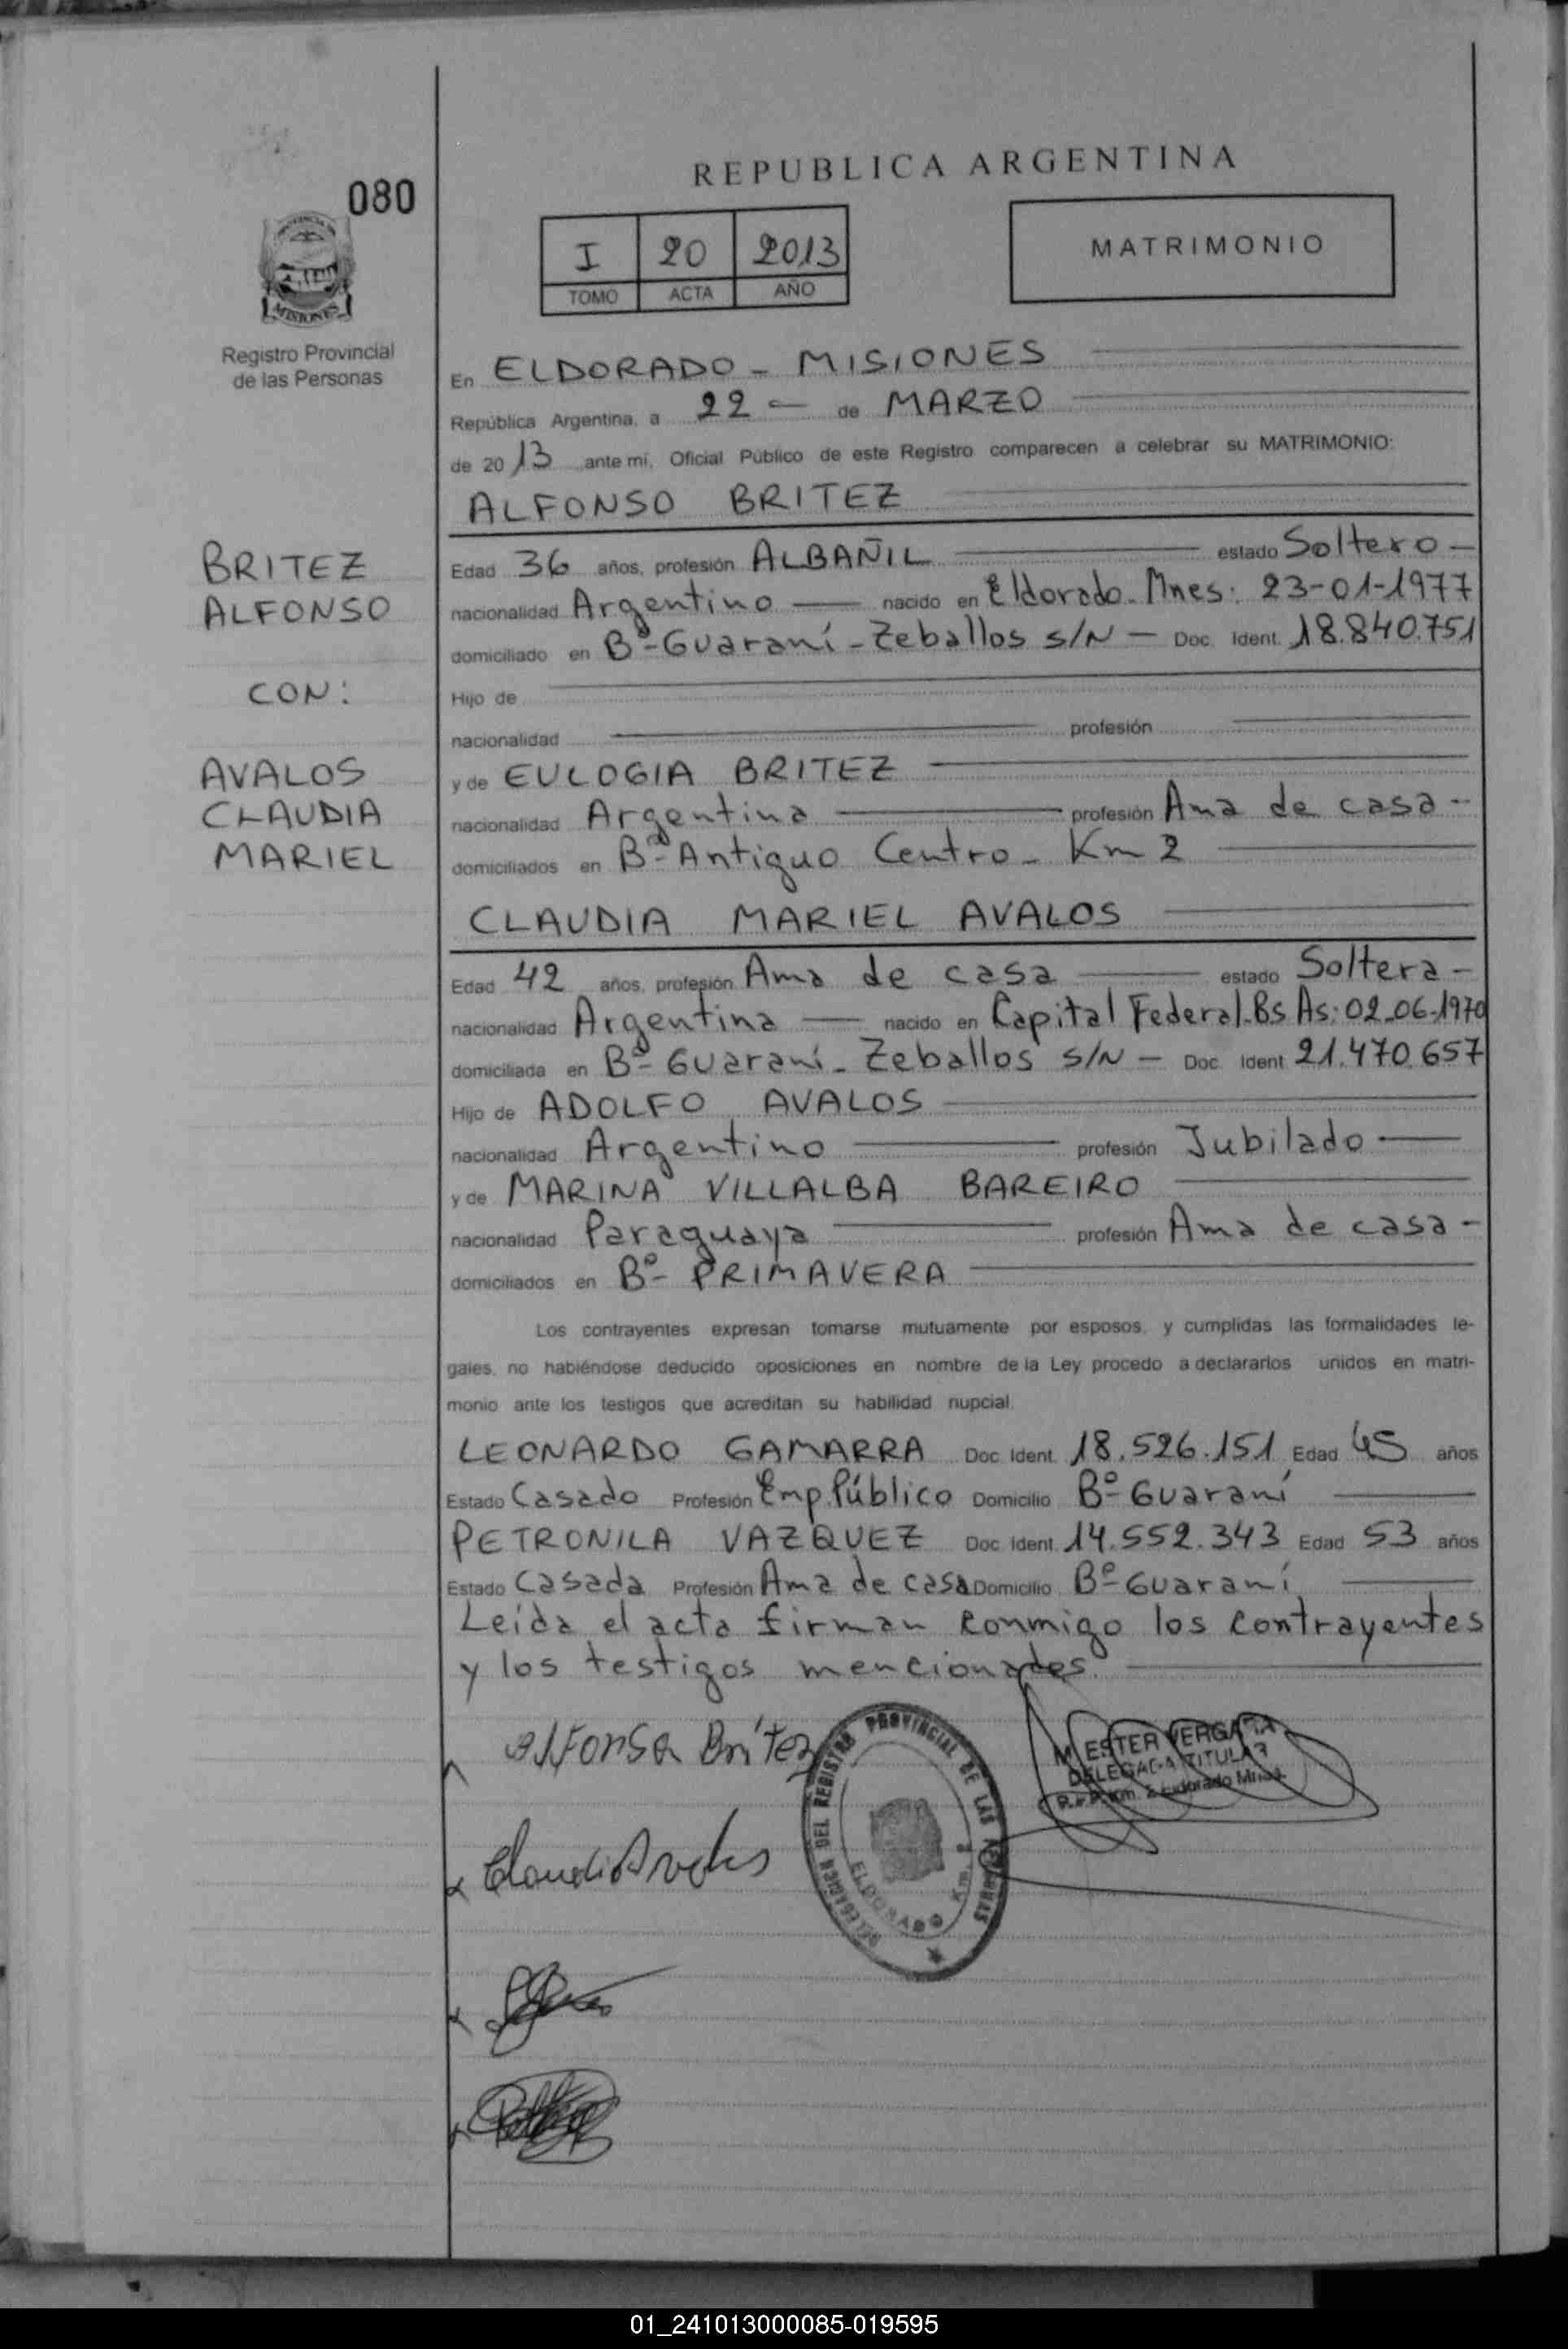 REPUBLICA ARGENTINA
080
I 20 2013
TOMO ACTA AÑO
MATRIMONIO
MISIONES
Registro Provincial
de las Personas
En ELDORADO - MISIONES
República Argentina, a 22 - de MARZO
de 2013 ante mí, Oficial Público de este Registro comparecen a celebrar su MATRIMONIO:
ALFONSO BRITEZ
BRITEZ
ALFONSO
CON:
AVALOS
CLAUDIA
MARIEL
Edad 36 años, profesión ALBAÑIL estado Soltero -
nacionalidad Argentino nacido en Eldorado - Mnes: 23-01-1977
domiciliado en Bº Guaraní - Zeballos s/N - Doc. Ident. 18.840.751
Hijo de
nacionalidad profesión
y de EULOGIA BRITEZ
nacionalidad Argentina profesión Ama de casa -
domiciliados en Bº Antiguo Centro - Km 2
CLAUDIA MARIEL AVALOS
Edad 42 años, profesión Ama de casa estado Soltera -
nacionalidad Argentina nacido en Capital Federal - Bs As: 02-06-1970
domiciliada en Bº Guaraní - Zeballos s/N - Doc. Ident 21.470.657
Hijo de ADOLFO AVALOS
nacionalidad Argentino profesión Jubilado
y de MARINA VILLALBA BAREIRO
nacionalidad Paraguaya profesión Ama de casa -
domiciliados en Bº PRIMAVERA
Los contrayentes expresan tomarse mutuamente por esposos, y cumplidas las formalidades le-
gales, no habiéndose deducido oposiciones en nombre de la Ley procedo a declararlos unidos en matri-
monio ante los testigos que acreditan su habilidad nupcial.
LEONARDO GAMARRA Doc. Ident. 18.526.151 Edad 45 años
Estado Casado Profesión Emp. Público Domicilio Bº Guaraní
PETRONILA VAZQUEZ Doc. Ident. 14.552.343 Edad 53 años
Estado Casada Profesión Ama de casa Domicilio Bº Guaraní
Leída el acta firman conmigo los contrayentes
y los testigos mencionados.
Alfonso Britez
Claudia Avalos
DELEGACION DEL REGISTRO PROVINCIAL DE LAS PERSONAS
ELDORADO Km. 2
M. ESTER VERGARA
DELEGADA TITULAR
R.P.P. Km. 2 Eldorado Mnes.
01_241013000085-019595